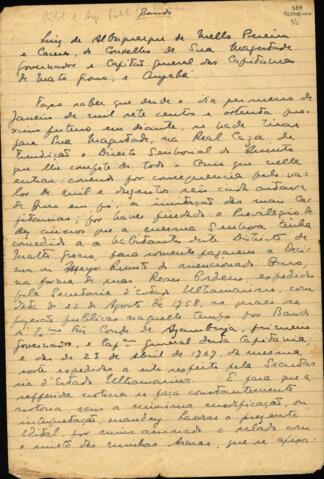 Bando
Luiz de Albuquerque de Mello Pereira
e Caceres, do Conselho de Sua Magestade
Governador e Capitão General das Capitanias
de Mato Grosso, e Cuyabá.
Faço saber que desde o dia primeiro de
Janeiro de mil sete centos e oitenta
em diante, se hade tirar
para Sua Magestade, na Real Caza de
Fundição o Direito Senhorial do Quinto
que lhe compete de todo o Ouro que nella
entrar: correndo por consequencia pelo va-
lor de mil e duzentos reis cada outava
de Ouro em pó, a imitação das mais Ca-
pitanias; por haver findado o Previlegio de
dez annos que a mesma Senhora tinha
concedido a os habitantes deste Districto de
Matto Grosso, para somente pagarem a Deci-
ma ou Meyo Quinto do mencionado Ouro,
na forma de suas Reaes Ordens expedidas
pela Secretaria d'Estado Ultramarina, com
data de 22 de Agosto de 1758, as quaes se
fizerão publicas naquelle tempo por Bando
do Conde de Azambuja, primeiro
Governador, e Cap.m General desta Capitania;
e de 23 de Abril de 1767, da mesma
sorte expedido a este respeito pela Secreta-
ria d'Estado Ultramarina. E para que a
refferida noticia se faça constantemente
notoria, sem a minima modificação, ou
interpretação, mandey lavrar o presente
Edital, por mim assinado e selado com
o sinete das minhas Armas, que se afixa-